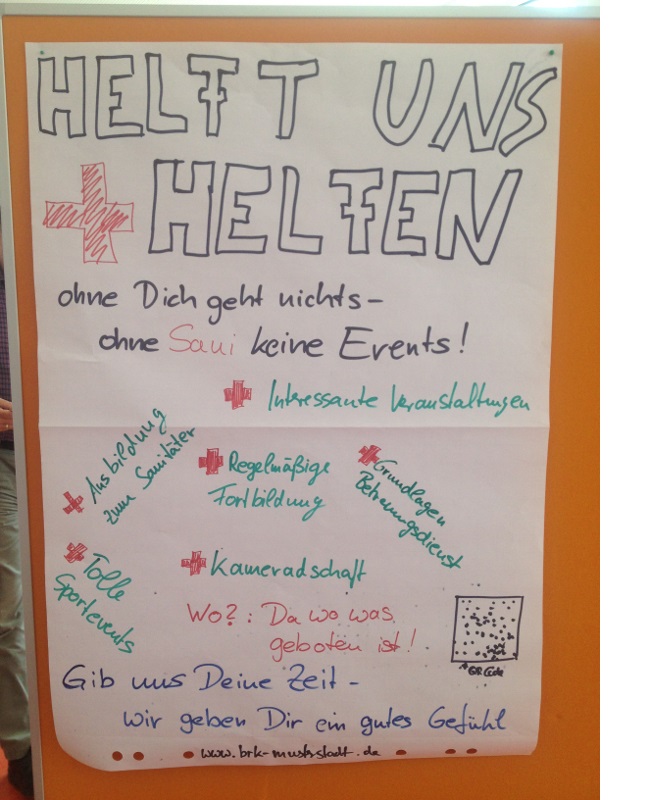 HELFT UNS
HELFEN
ohne Dich geht nichts -
ohne Saui keine Events!
Interessante Veranstaltungen
Ausbildung
zum Sanitäter
Regelmäßige
Fortbildung
Grundlagen
Betreuungsdienst
Tolle
Sportevents
Kameradschaft
Wo?: Da wo was
geboten ist!
QR Code
Gib uns Deine Zeit -
wir geben Dir ein gutes Gefühl
www.brk-musterstadt.de